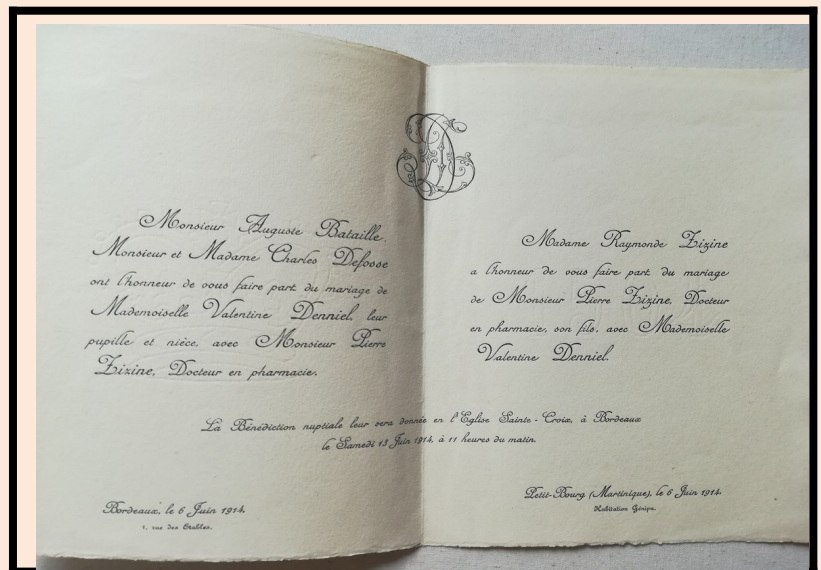 Monsieur Auguste Bataille,
Monsieur et Madame Charles Defosse
ont l'honneur de vous faire part du mariage de
Mademoiselle Valentine Denniel, leur
pupille et nièce, avec Monsieur Pierre
Zizine, Docteur en pharmacie.
Madame Raymonde Zizine
a l'honneur de vous faire part du mariage
de Monsieur Pierre Zizine, Docteur
en pharmacie, son fils, avec Mademoiselle
Valentine Denniel.
La Bénédiction nuptiale leur sera donnée en l'Eglise Sainte-Croix, à Bordeaux
le Samedi 13 Juin 1914, à 11 heures du matin.
Bordeaux, le 6 Juin 1914.
rue des Etables.
Petit-Bourg (Martinique), le 6 Juin 1914.
Habitation Génipa.